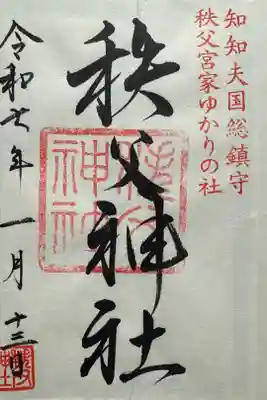 知知夫国総鎮守
秩父宮家ゆかりの社
秩父神社
秩父神社
令和七年一月十三日